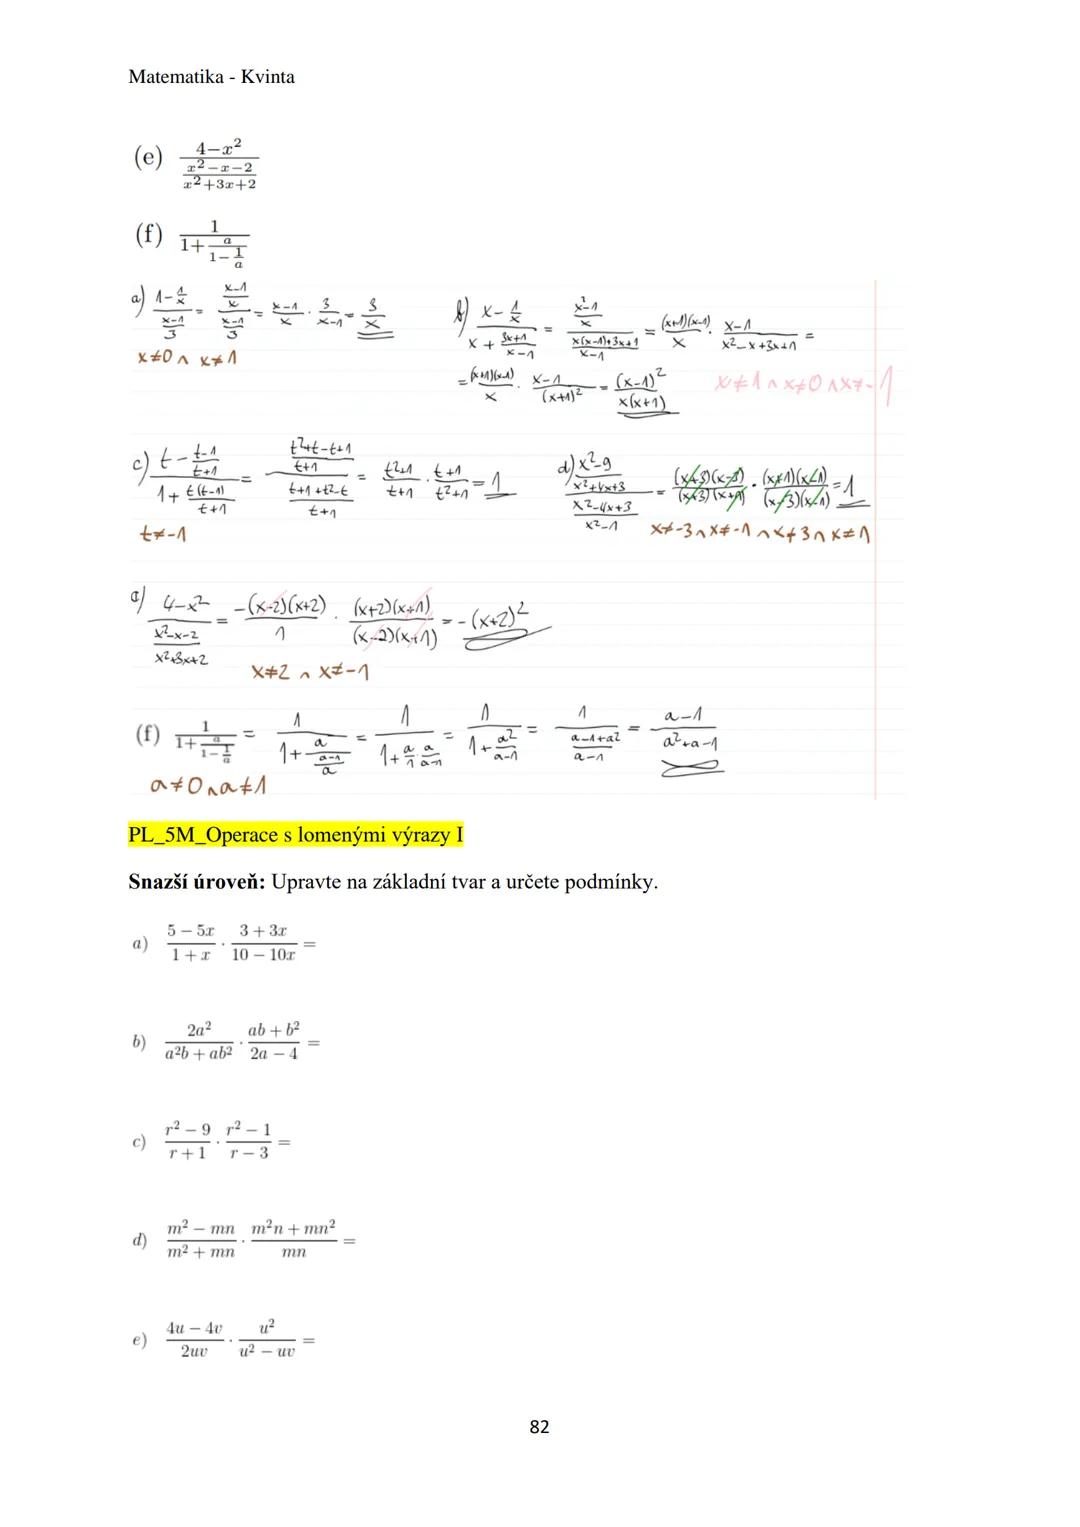 Matematika - Kvinta
(e) \frac{4-x^2}{\frac{x^2-x-2}{x^2+3x+2}}
(f) \frac{1}{1+\frac{a}{1-\frac{1}{a}}}
a) \frac{1-\frac{1}{x}}{\frac{x-1}{3}} = \frac{\frac{x-1}{x}}{\frac{x-1}{3}} = \frac{x-1}{x} · \frac{3}{x-1} = \frac{3}{x}
x≠0 ∧ x≠1
b) \frac{x-\frac{1}{x}}{x+\frac{3x+1}{x-1}} = \frac{\frac{x^2-1}{x}}{\frac{x(x-1)+3x+1}{x-1}} = \frac{(x+1)(x-1)}{x} · \frac{x-1}{x^2-x+3x+1} =
= \frac{(x+1)(x-1)}{x} · \frac{x-1}{(x+1)^2} = \frac{(x-1)^2}{x(x+1)} x≠1 ∧ x≠0 ∧ x≠-1
c) \frac{t-\frac{t-1}{t+1}}{1+\frac{t(t-1)}{t+1}} = \frac{\frac{t^2+t-t+1}{t+1}}{\frac{t+1+t^2-t}{t+1}} = \frac{t^2+1}{t+1} · \frac{t+1}{t^2+1} = 1
t≠-1
d) \frac{\frac{x^2-9}{x^2+4x+3}}{\frac{x^2-4x+3}{x^2-1}} = \frac{(x+3)(x-3)}{(x+3)(x+1)} · \frac{(x+1)(x-1)}{(x-3)(x-1)} = 1
x≠-3 ∧ x≠-1 ∧ x≠3 ∧ x≠1
e) \frac{4-x^2}{\frac{x^2-x-2}{x^2+3x+2}} = \frac{-(x-2)(x+2)}{1} · \frac{(x+2)(x+1)}{(x-2)(x+1)} = -(x+2)^2
x≠2 ∧ x≠-1
(f) \frac{1}{1+\frac{a}{1-\frac{1}{a}}} = \frac{1}{1+\frac{a}{\frac{a-1}{a}}} = \frac{1}{1+\frac{a}{1}·\frac{a}{a-1}} = \frac{1}{1+\frac{a^2}{a-1}} = \frac{1}{\frac{a-1+a^2}{a-1}} = \frac{a-1}{a^2+a-1}
a≠0 ∧ a≠1
PL_5M_Operace s lomenými výrazy I
Snazší úroveň: Upravte na základní tvar a určete podmínky.
a) \frac{5-5x}{1+x} · \frac{3+3x}{10-10x} =
b) \frac{2a^2}{a^2b+ab^2} · \frac{ab+b^2}{2a-4} =
c) \frac{r^2-9}{r+1} · \frac{r^2-1}{r-3} =
d) \frac{m^2-mn}{m^2+mn} · \frac{m^2n+mn^2}{mn} =
e) \frac{4u-4v}{2uv} · \frac{u^2}{u^2-uv} =
82